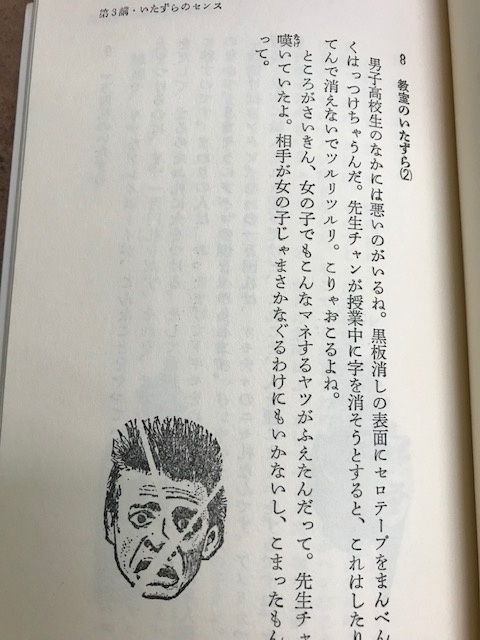 第3講・いたずらのセンス
8 教室のいたずら②
男子高校生のなかには悪いのがいるね。黒板消しの表面にセロテープをまんべん
くはっつけちゃうんだ。先生チャンが授業中に字を消そうとすると、これはしたり
てんで消えないでツルリツルリ。こりゃおこるよね。
ところがさいきん、女の子でもこんなマネするヤツがふえたんだって。先生チャ
嘆いていたよ。相手が女の子じゃまさかなぐるわけにもいかないし、こまったもん
って。